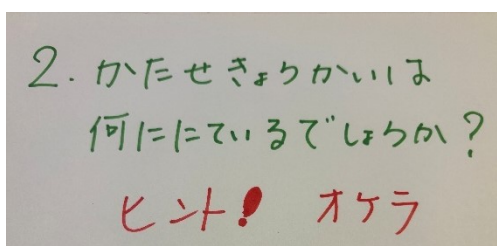 2. かたせきょうかいは
何ににているでしょうか?
ヒント! オケラ